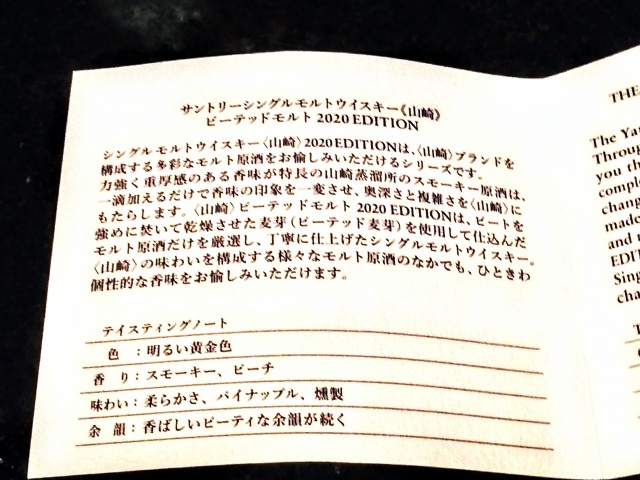 サントリーシングルモルトウイスキー《山崎》
ピーテッドモルト 2020 EDITION
シングルモルトウイスキー〈山崎〉2020 EDITIONは、〈山崎〉ブランドを
構成する多彩なモルト原酒をお愉しみいただけるシリーズです。
力強く重厚感のある香味が特長の山崎蒸溜所のスモーキー原酒は、
一滴加えるだけで香味の印象を一変させ、奥深さと複雑さを〈山崎〉に
もたらします。〈山崎〉ピーテッドモルト 2020 EDITIONは、ピートを
強めに焚いて乾燥させた麦芽（ピーテッド麦芽）を使用して仕込んだ
モルト原酒だけを厳選し、丁寧に仕上げたシングルモルトウイスキー。
〈山崎〉の味わいを構成する様々なモルト原酒のなかでも、ひときわ
個性的な香味をお愉しみいただけます。
テイスティングノート
色 ：明るい黄金色
香 り：スモーキー、ピーチ
味わい：柔らかさ、パイナップル、燻製
余 韻：香ばしいピーティな余韻が続く
THE
The Ya
Throug
you th
compl
chang
made
and
EDIT
Sing
cha